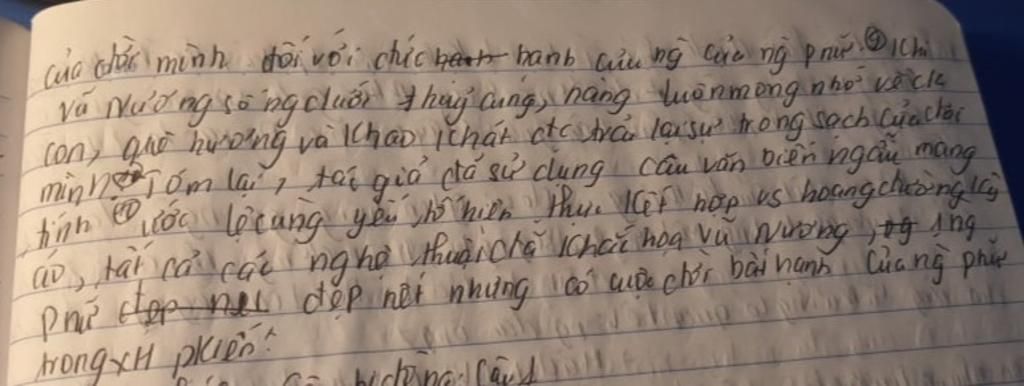 của chồi mình đối với chức hanh của ng của ng phụ. Khi
vũ Nương sống dưới thủy cung, nàng luôn mong nhớ về ck
con, quê hương và khao khát đc trả lại sự trong sạch của chồi
mình Tóm lại, tác giả đã sử dụng câu văn biền ngẫu mang
tính ước lệ cùng yếu tố hiện thực kết hợp vs hoang đường kỳ
ảo, tất cả các nghệ thuật đã khắc hoạ vũ Nương, 1 ng
phụ đẹp nết nhưng có cuộc đời bất hạnh của ng phụ
trong XH pkiến.